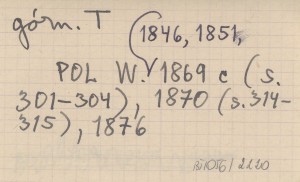 górn. T
1846, 1851,
POL W. 1869 c (s.
301-304), 1870 (s. 314-
315), 1876
/2220